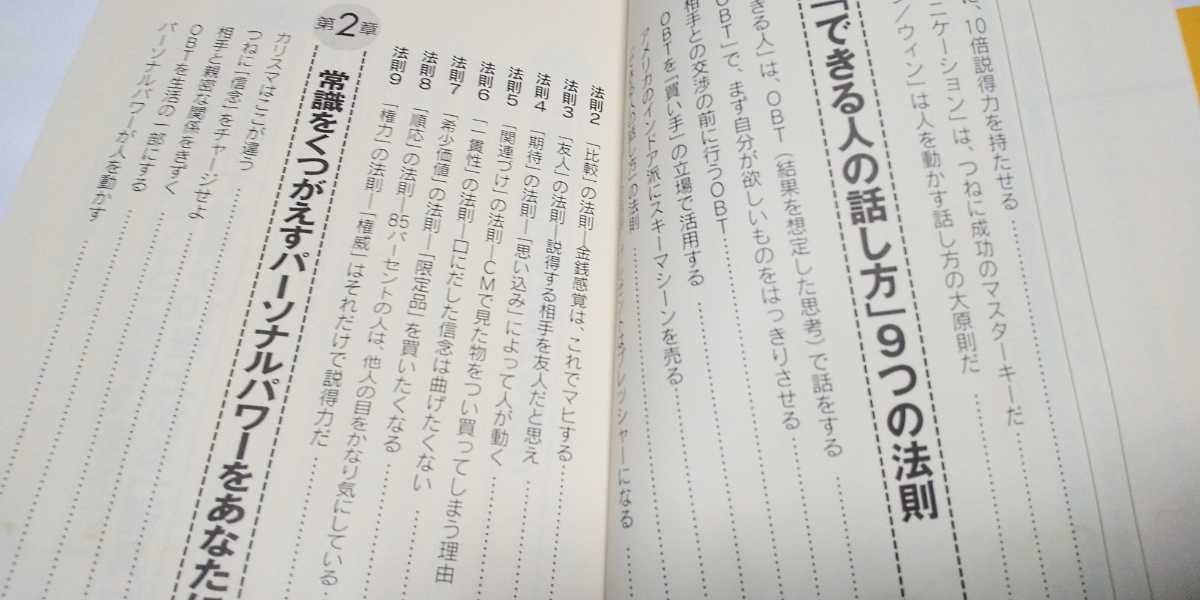 に、10倍説得力を持たせる
ニケーション」は、つねに成功のマスターキーだ
ン/ウィン」は人を動かす話し方の大原則だ
「できる人の話し方」9つの法則
きる人」は、OBT(結果を想定した思考)で話をする
OBT」で、まず自分が欲しいものをはっきりさせる
相手との交渉の前に行うOBT
OBTを「買い手」の立場で活用する
アメリカのインドア派にスキーマシーンを売る
の法則
プレッシャーになる
法則2 「比較」の法則―金銭感覚は、これでマヒする
法則3 「友人」の法則―説得する相手を友人だと思え
法則4 「期待」の法則―「思い込み」によって人が動く
法則5 「関連づけ」の法則―CMで見た物をつい買ってしまう理由
法則6 「一貫性」の法則―口にだした信念は曲げたくない
法則7 「希少価値」の法則―「限定品」を買いたくなる
法則8 「順応」の法則―85パーセントの人は、他人の目をかなり気にしている
法則9 「権力」の法則―「権威」はそれだけで説得力だ
第2章
常識をくつがえすパーソナルパワーをあなた
カリスマはここが違う
つねに「信念」をチャージせよ
相手と親密な関係をきずく
OBTを生活の一部にする
パーソナルパワーが人を動かす